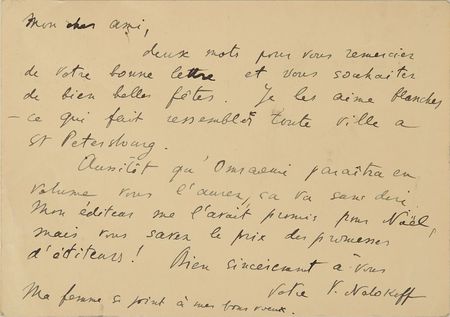 Mon cher ami,
deux mots pour vous remercier
de votre bonne lettre et vous souhaiter
de bien belles fêtes. Je les aime blanches
– ce qui fait ressembler toute ville a
St Petersbourg.
Aussitôt qu'Ombre paraîtra en
volume vous l'aurez, ça va sans dire.
Mon éditeur me l'avait promis pour Noël,
mais vous savez le prix des promesses
d'éditeurs! Bien sincèrement à vous
Votre V. Nabokoff
Ma femme se joint à mes bons voeux.